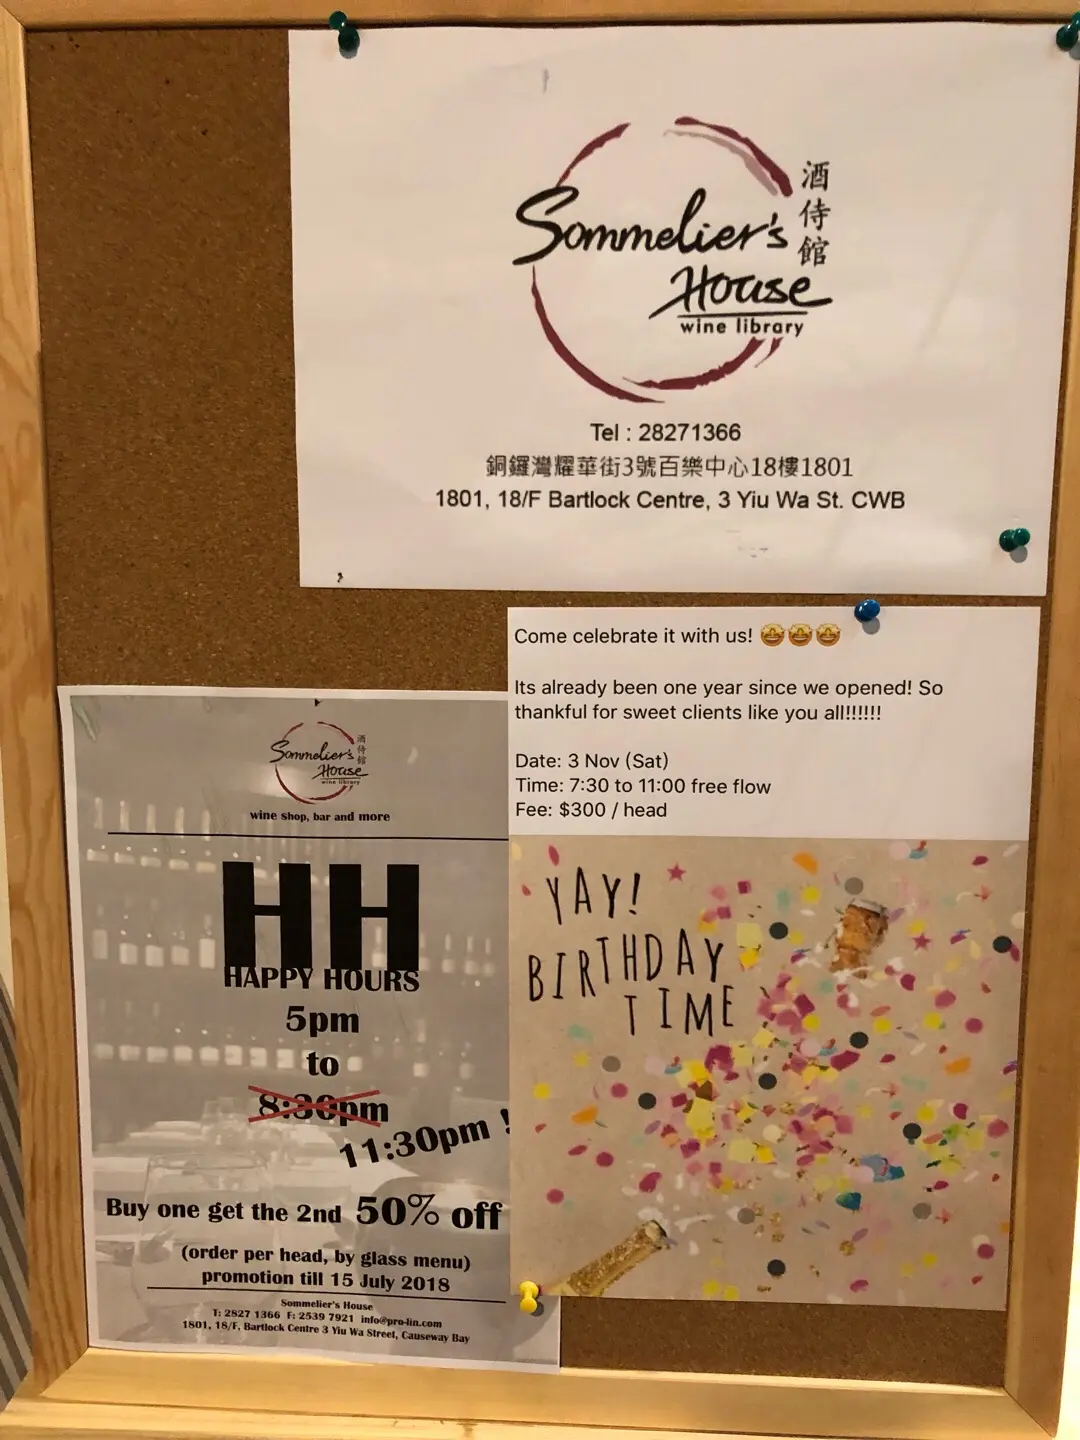 Sommelier's
House
wine library
酒侍館
Tel : 28271366
銅鑼灣耀華街3號百樂中心18樓1801
1801, 18/F Bartlock Centre, 3 Yiu Wa St. CWB
Come celebrate it with us! 🤩🤩🤩
Its already been one year since we opened! So
thankful for sweet clients like you all!!!!!!
Date: 3 Nov (Sat)
Time: 7:30 to 11:00 free flow
Fee: $300 / head
YAY!
BIRTHDAY
TIME
Sommelier's
House
wine library
酒侍館
wine shop, bar and more
HH
HAPPY HOURS
5pm
to
8:30pm
11:30pm !
Buy one get the 2nd 50% off
(order per head, by glass menu)
promotion till 15 July 2018
Sommelier's House
T: 2827 1366 F: 2539 7921 info@pro-lin.com
1801, 18/F, Bartlock Centre 3 Yiu Wa Street, Causeway Bay